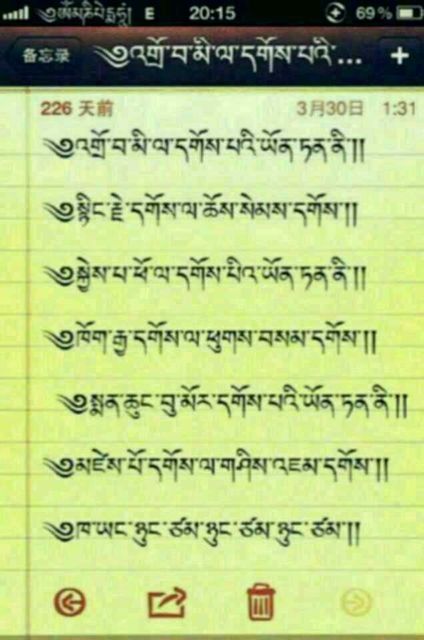 ༄༅ཨོཾ་མ་ཎི་པེ་ཧཱུྃ། E 20:15 69%
备忘录 ༄༅འགྲོ་བ་མི་ལ་དགོས་པའི་... +
226 天前 3月30日 1:31
༄༅འགྲོ་བ་མི་ལ་དགོས་པའི་ཡོན་ཏན་ནི།།
༄༅སྙིང་རྗེ་དགོས་ལ་ཆོས་སེམས་དགོས།།
༄༅སྐྱེས་པ་ཕོ་ལ་དགོས་པིའ་ཡོན་ཏན་ནི།།
༄༅ཁོག་རྒྱ་དགོས་ལ་ཕུགས་བསམ་དགོས།།
༄༅སྨན་ཆུང་བུ་མོར་དགོས་པའི་ཡོན་ཏན་ནི།།
༄༅མཛེས་པོ་དགོས་ལ་གཤིས་འཇམ་དགོས།།
༄༅ཁ་ཡང་ཉུང་ཙམ་ཉུང་ཙམ་ཉུང་ཙམ།།